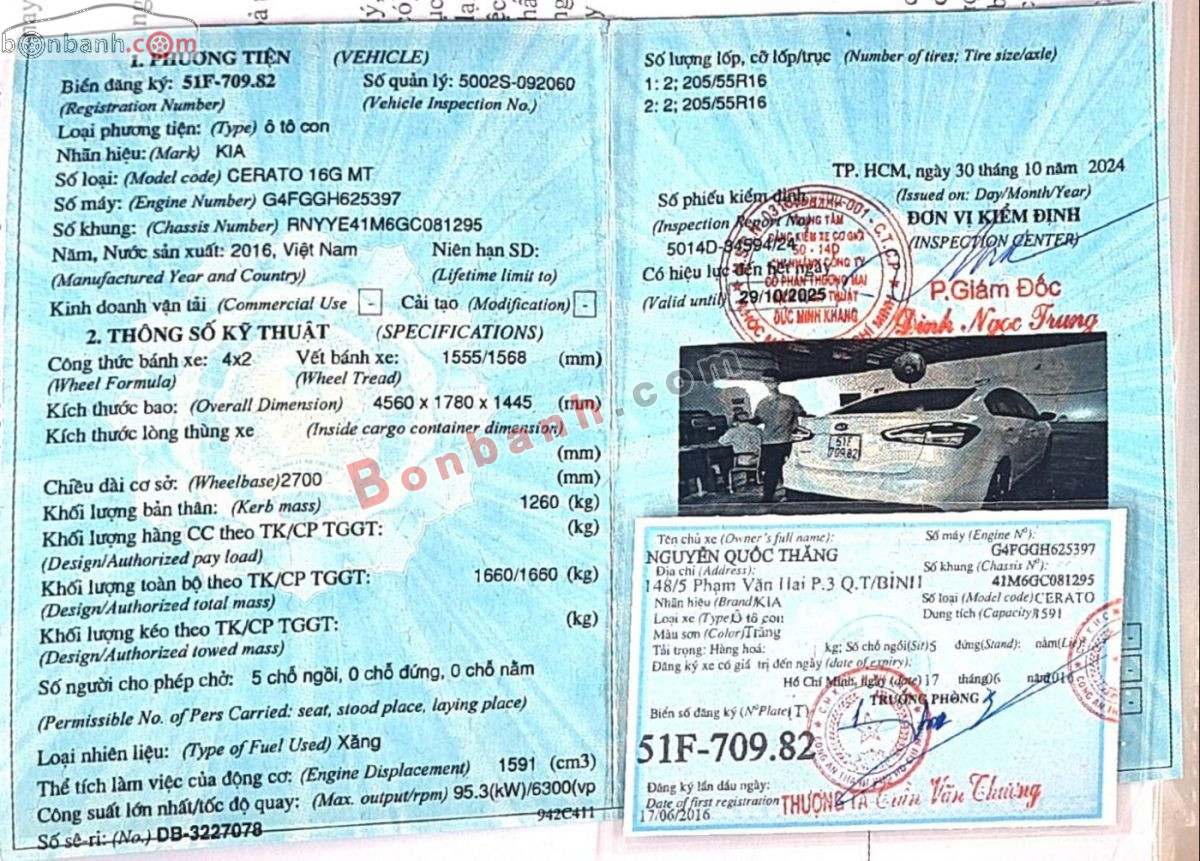 bonbanh.com
1. PHƯƠNG TIỆN (VEHICLE)
Biển đăng ký: 51F-709.82 Số quản lý: 5002S-092060
(Registration Number) (Vehicle Inspection No.)
Loại phương tiện: (Type) ô tô con
Nhãn hiệu: (Mark) KIA
Số loại: (Model code) CERATO 16G MT
Số máy: (Engine Number) G4FGGH625397
Số khung: (Chassis Number) RNYYE41M6GC081295
Năm, Nước sản xuất: 2016, Việt Nam Niên hạn SD:
(Manufactured Year and Country) (Lifetime limit to)
Kinh doanh vận tải (Commercial Use - Cải tạo (Modification) -
2. THÔNG SỐ KỸ THUẬT (SPECIFICATIONS)
Công thức bánh xe: 4x2 Vết bánh xe: 1555/1568 (mm)
(Wheel Formula) (Wheel Tread)
Kích thước bao: (Overall Dimension) 4560 x 1780 x 1445 (mm)
Kích thước lòng thùng xe (Inside cargo container dimension)
(mm)
Chiều dài cơ sở: (Wheelbase)2700 (mm)
Khối lượng bản thân: (Kerb mass) 1260 (kg)
Khối lượng hàng CC theo TK/CP TGGT: (kg)
(Design/Authorized pay load)
Khối lượng toàn bộ theo TK/CP TGGT: 1660/1660 (kg)
(Design/Authorized total mass)
Khối lượng kéo theo TK/CP TGGT: (kg)
(Design/Authorized towed mass)
Số người cho phép chở: 5 chỗ ngồi, 0 chỗ đứng, 0 chỗ nằm
(Permissible No. of Pers Carried: seat, stood place, laying place)
Loại nhiên liệu: (Type of Fuel Used) Xăng
Thể tích làm việc của động cơ: (Engine Displacement) 1591 (cm3)
Công suất lớn nhất/tốc độ quay: (Max. output/rpm) 95.3(kW)/6300(vp
942C411
Số sê-ri: (No.) DB-3227078
Số lượng lốp, cỡ lốp/trục (Number of tires; Tire size/axle)
1: 2; 205/55R16
2: 2; 205/55R16
TP. HCM, ngày 30 tháng 10 năm 2024
Số phiếu kiểm định (Issued on: Day/Month/Year)
(Inspection Report No) ĐƠN VỊ KIỂM ĐỊNH
5014D-84594/24 (INSPECTION CENTER)
Có hiệu lực đến hết ngày
(Valid until) 29/10/2025
P.Giám Đốc
Đinh Ngọc Trung
TRUNG TÂM
ĐĂNG KIỂM XE CƠ GIỚI
50 - 14D
CHI NHÁNH CÔNG TY
CỔ PHẦN THƯƠNG MẠI
THUẬT
ĐỨC MINH KHANG
51F
709.82
Bonbanh.com
Tên chủ xe (Owner's full name): Số máy (Engine Nº):
NGUYỄN QUỐC THẮNG G4FGGH625397
Địa chỉ (Address): Số khung (Chassis Nº):
148/5 Phạm Văn Hai P.3 Q.T/BÌNH 41M6GC081295
Nhãn hiệu (Brand)KIA Số loại (Model code)CERATO
Loại xe (Type)Ô tô con Dung tích (Capacity)1591
Màu sơn (Color)Trắng
Tải trọng: Hàng hoá: kg; Số chỗ ngồi(Sit)5 đứng(Stand): nằm(Lie):
Đăng ký xe có giá trị đến ngày (date of expiry):
Hồ Chí Minh, ngày (date)17 tháng06 năm2016
TRƯỞNG PHÒNG
Biển số đăng ký (NºPlate)(T)
51F-709.82
Đăng ký lần đầu ngày:
Date of first registration
17/06/2016
THƯỢNG TÁ Trần Văn Thương